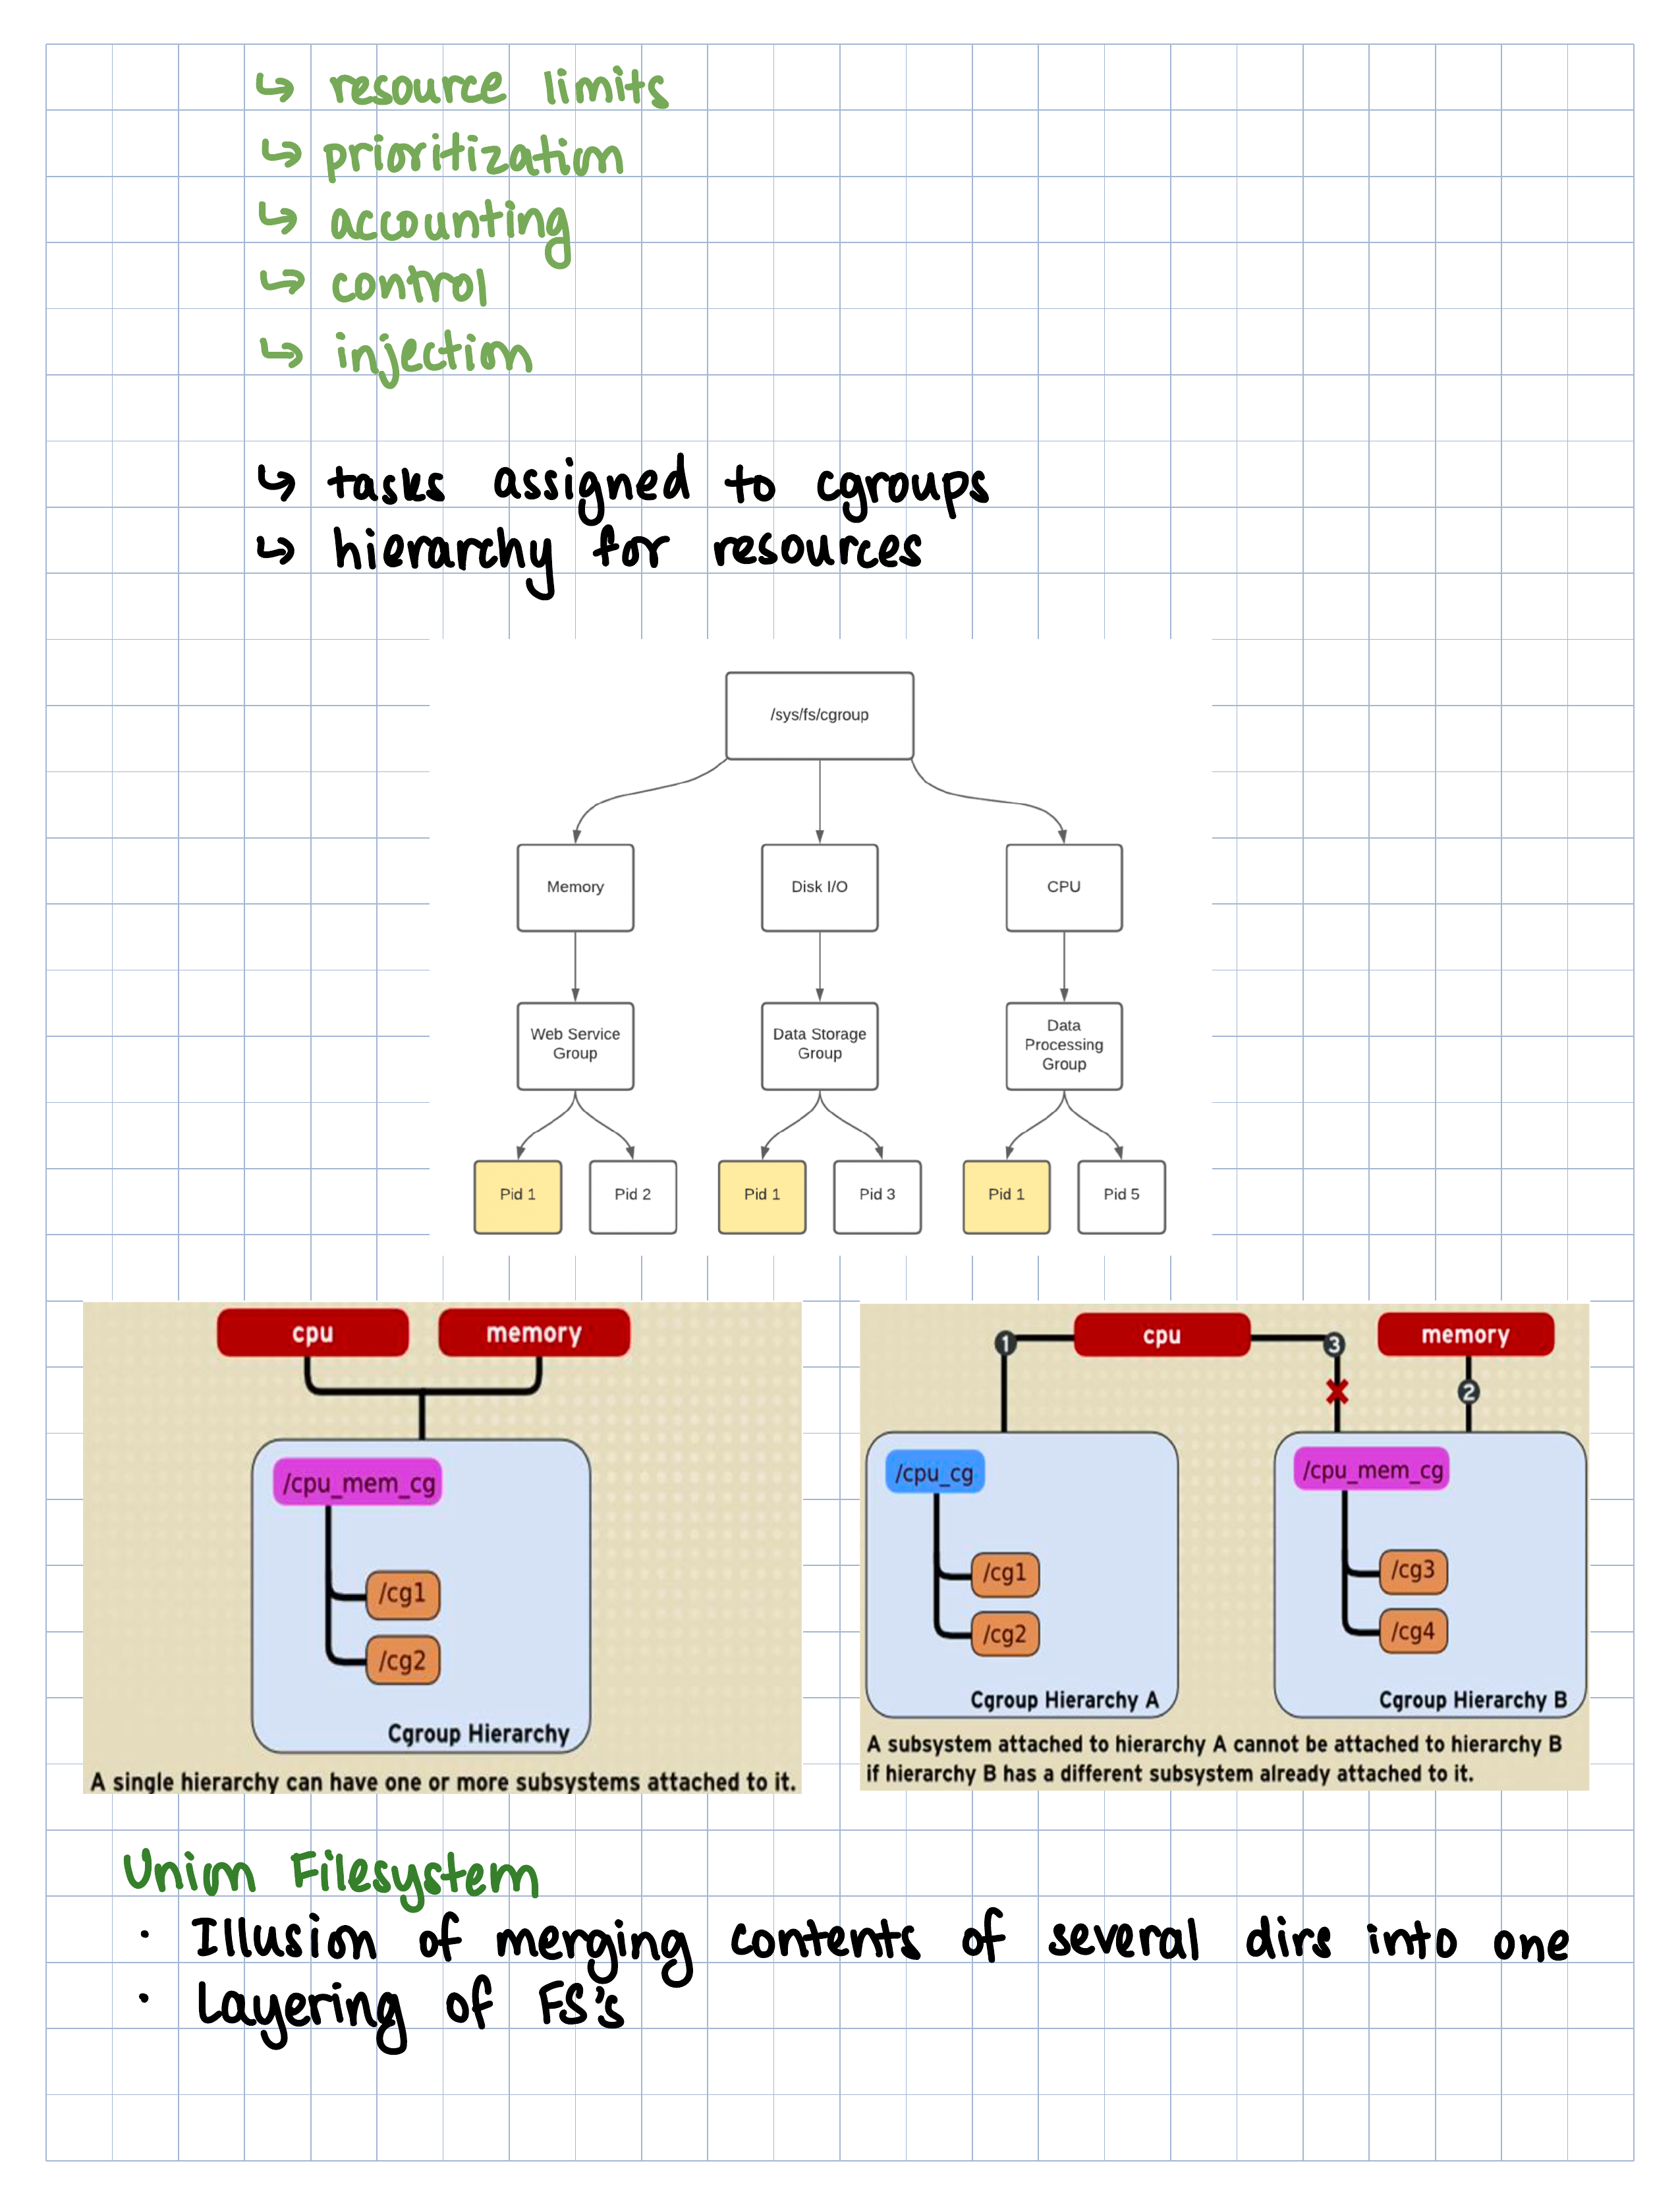 ↳ resource limits
↳ prioritization
↳ accounting
↳ control
↳ injection
↳ tasks assigned to cgroups
↳ hierarchy for resources
/sys/fs/cgroup
Memory
Disk I/O
CPU
Web Service
Group
Data Storage
Group
Data
Processing
Group
Pid 1
Pid 2
Pid 1
Pid 3
Pid 1
Pid 5
cpu
memory
/cpu_mem_cg
/cg1
/cg2
Cgroup Hierarchy
A single hierarchy can have one or more subsystems attached to it.
1
cpu
3
memory
2
/cpu_cg
/cg1
/cg2
Cgroup Hierarchy A
/cpu_mem_cg
/cg3
/cg4
Cgroup Hierarchy B
A subsystem attached to hierarchy A cannot be attached to hierarchy B
if hierarchy B has a different subsystem already attached to it.
Union Filesystem
· Illusion of merging contents of several dirs into one
· Layering of FS's